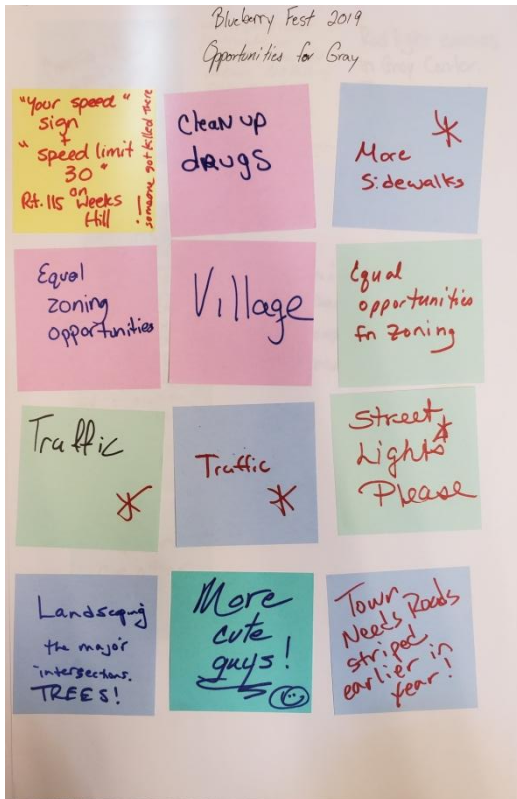 Blueberry Fest 2019
Opportunities for Gray
"Your speed"
sign
+
"speed limit
30"
on
Rt. 115 Weeks
Hill
someone got killed there
Clean up
drugs
More
Sidewalks
Equal
zoning
opportunities
Village
Equal
opportunities
fn zoning
Traffic
Traffic
Street
Lights
Please
Landscaping
the major
intersections.
TREES!
More
cute
guys!
Town
Needs Roads
striped
earlier in
year!